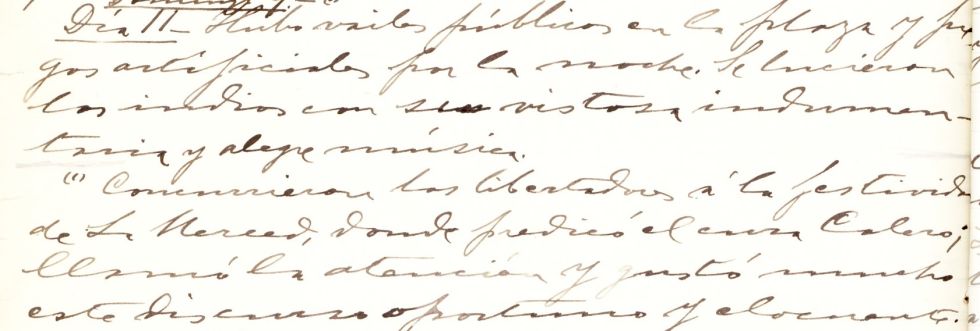 Día 11 - Hubo vailes públicos en la plaza y fue
gos artificiales por la noche. Se lucieron
los indios con su vistosa indumen-
taria y alegre música.
(") Concurrieron los libertadores á la festivida
de La Merced, donde predicó el cura Calero;
llamó la atención y gustó mucho
este discurso oportuno y elocuente.